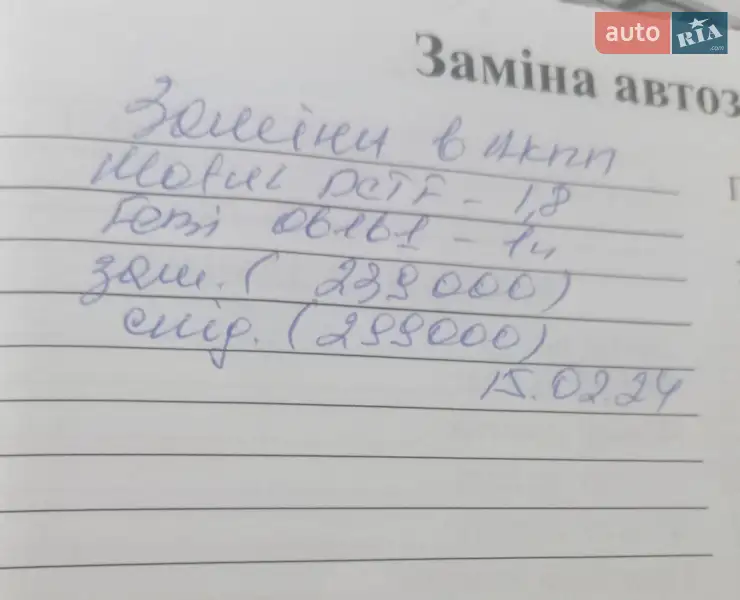 auto RIA .com
Заміна автоз
Заміни в АКПП
Mobil DCTF - 1,8
Febi 06161 - 1ч
зам. ( 239000)
слід. (299000)
15.02.24